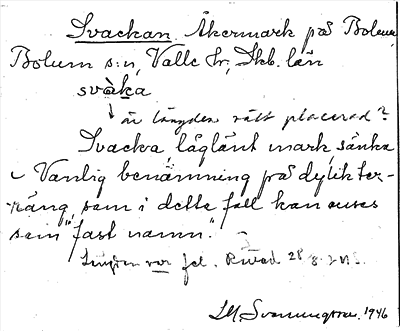 Svackan Åkermark på Bolum,
Bolum s:n, Valle hr, Skb. län
svàka
är längden rätt placerad?
Svacka låglänt mark, sänka
Vanlig benämning på dylik ter-
räng, som i dette fall kan anses
som "fast namn".
Längden var fel. 28
1946